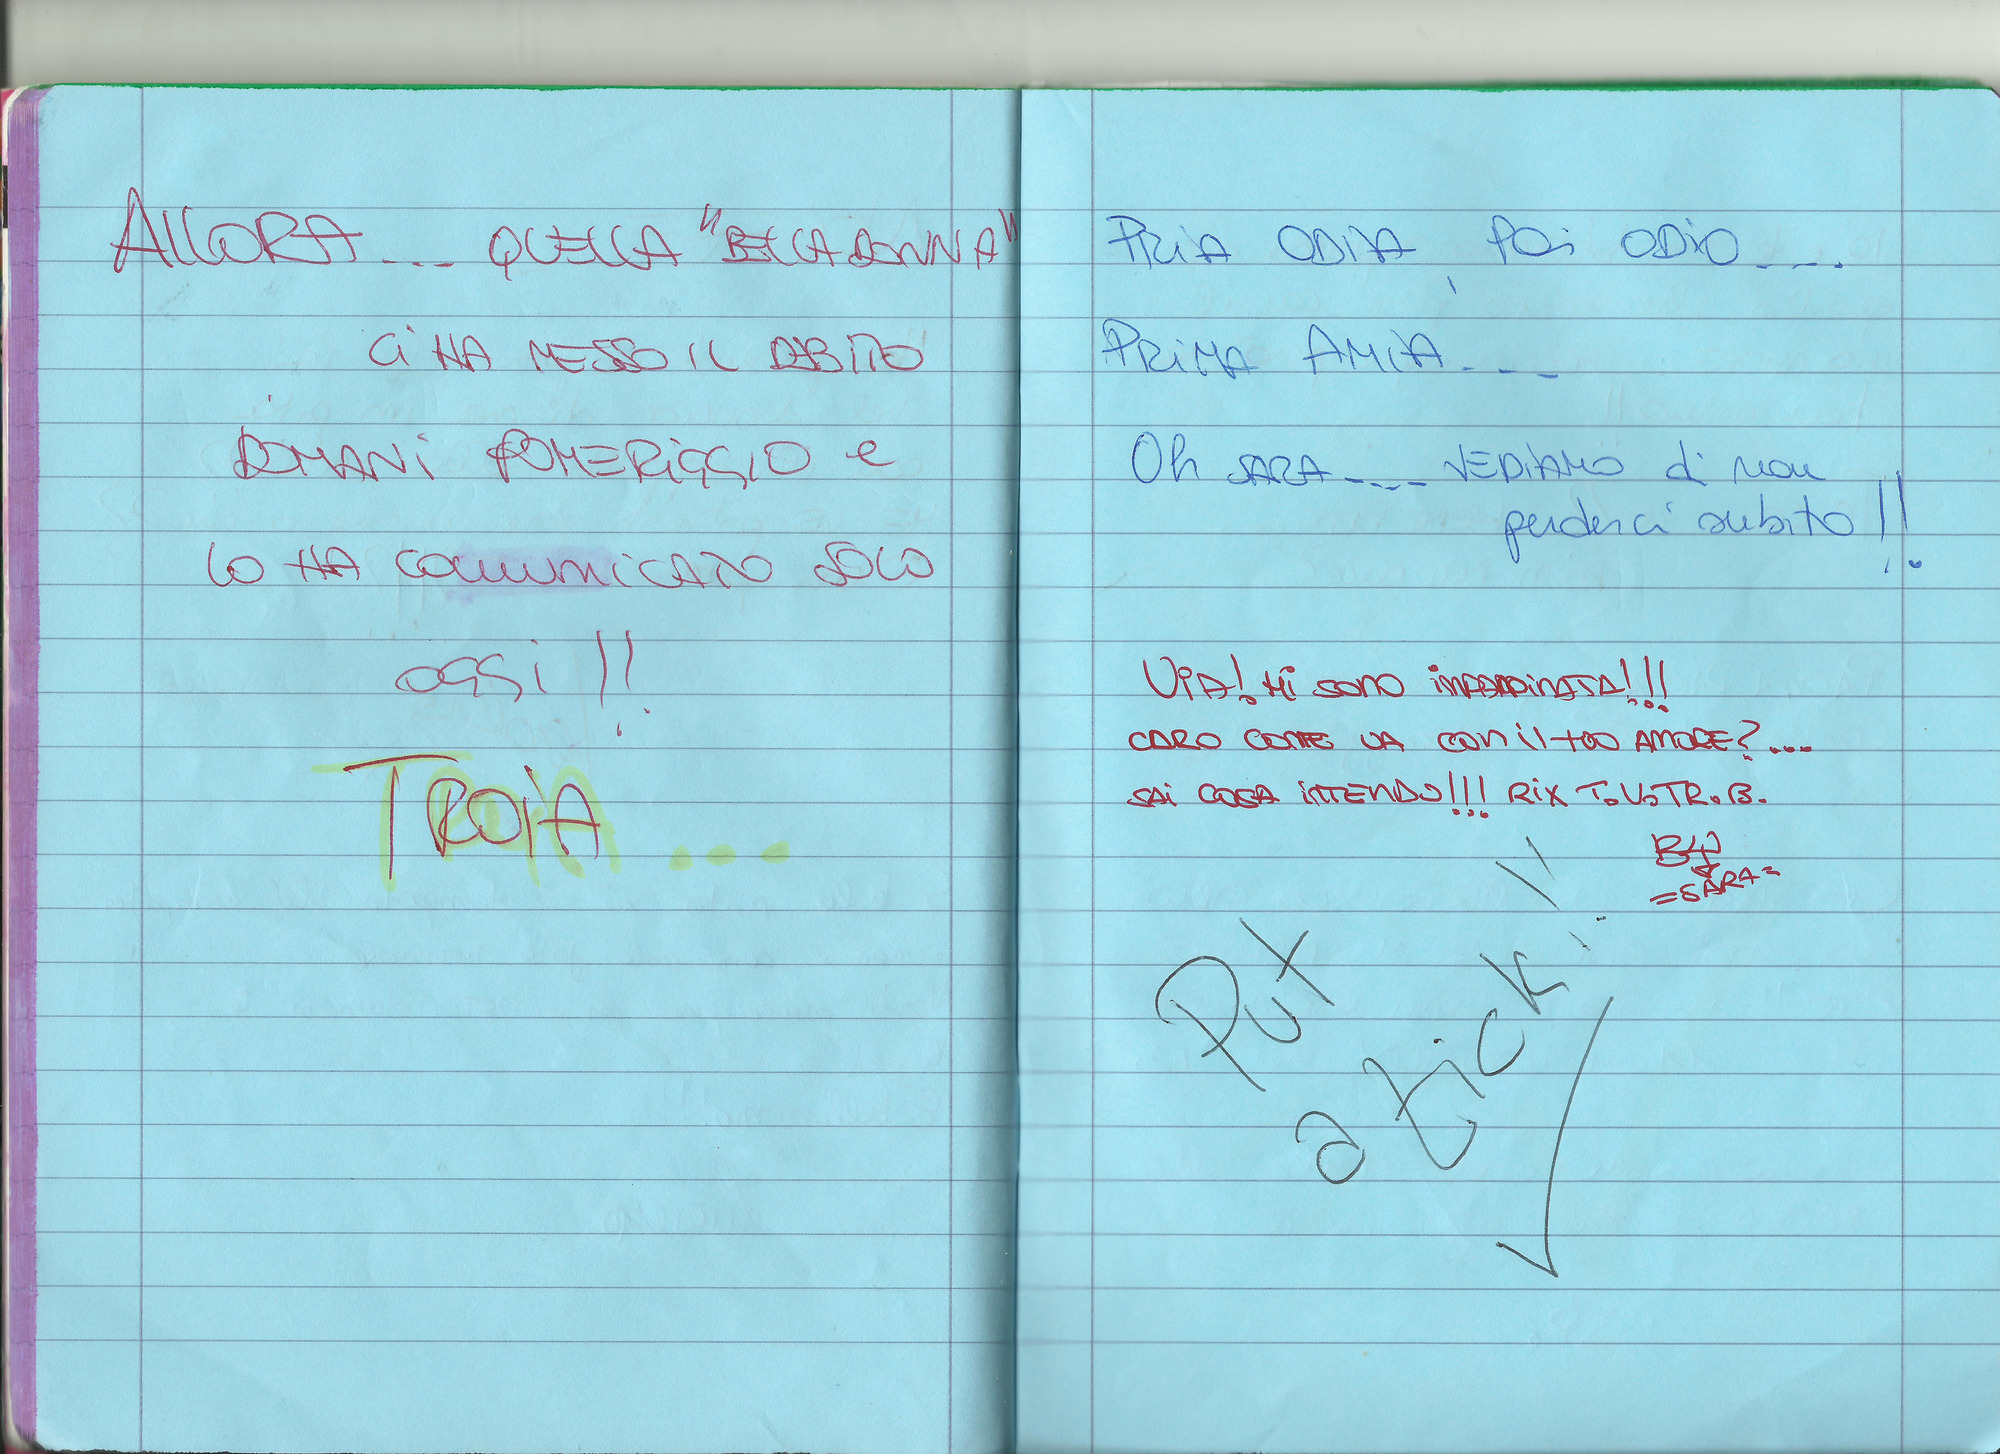 ALLORA... QUELLA "BELLA DONNA"
CI HA MESSO IL DEBITO
DOMANI POMERIGGIO e
LO HA COMUNICATO SOLO
OGGI!!
TROIA...
ODIA, POI ODIO....
PRIMA AMIA....
Oh SARA.... VEDIAMO di non
perderci subito!!
VIA! Mi sono impappinata!!!
CARO COME VA CON il tuo AMORE?...
SAI COSA INTENDO!!! RIX T.V.TR.B.
=SARA=
Put
a tick!!